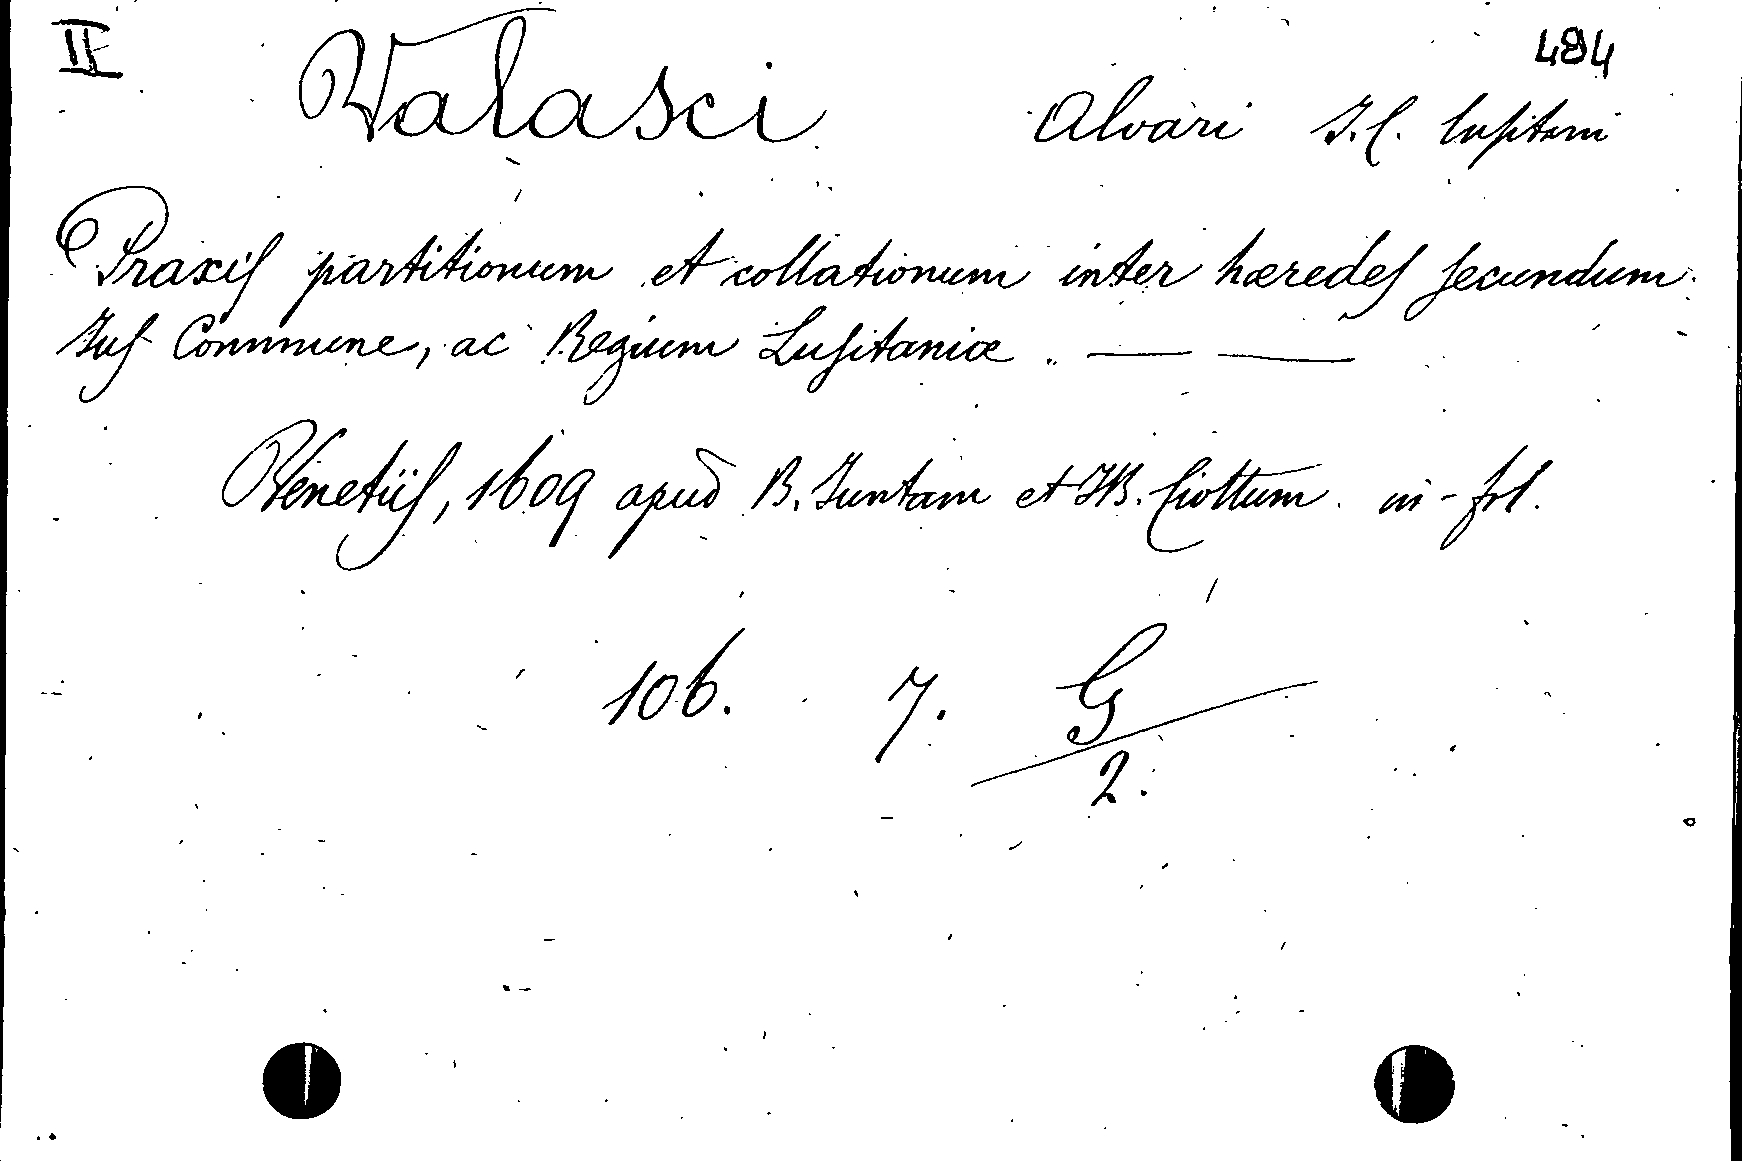 II 494
Valasci Alvari J.C. lusitani
Praxis partitionum et collationum inter hæredes secundum
Jus Commune, ac Regium Lusitaniæ. — —
Venetiis, 1609 apud B. Juntam et JB. Ciottum. in-fol.
106. 7. G
2.